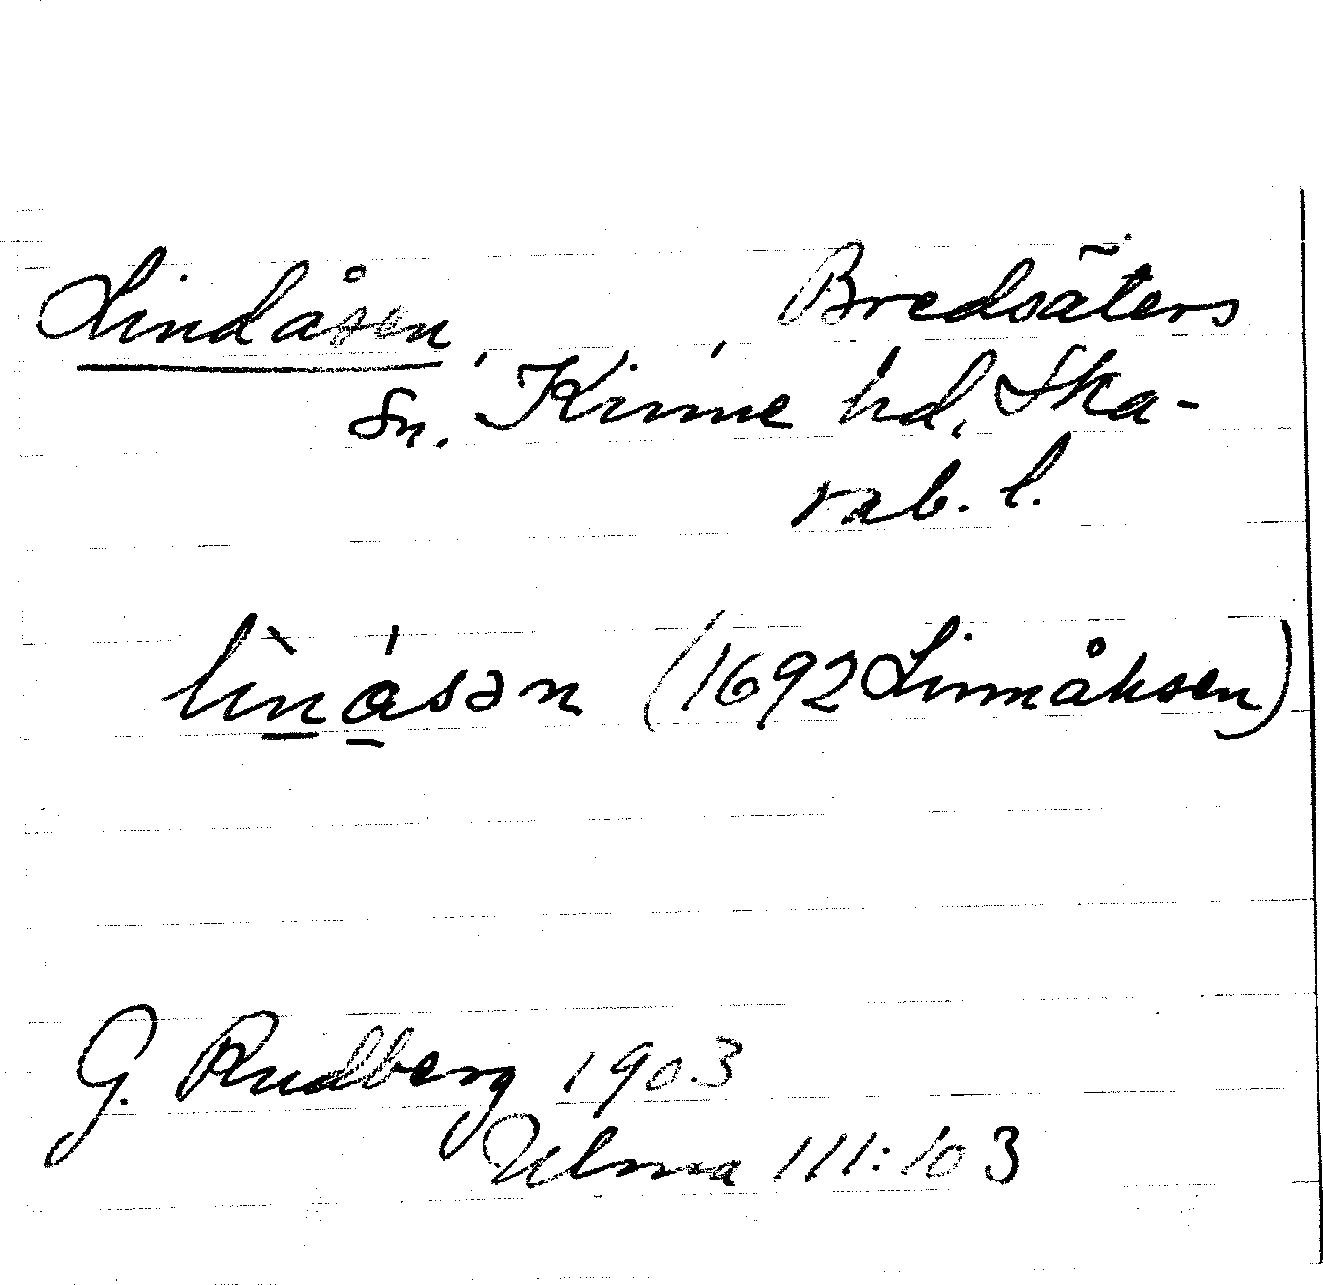 Lindåsen, Bredsäters
sn. Kinne hd, Ska-
rab. l.
lìnásən (1692 Linnåhsen)
G. Rudberg 1903
Ulma 111:103